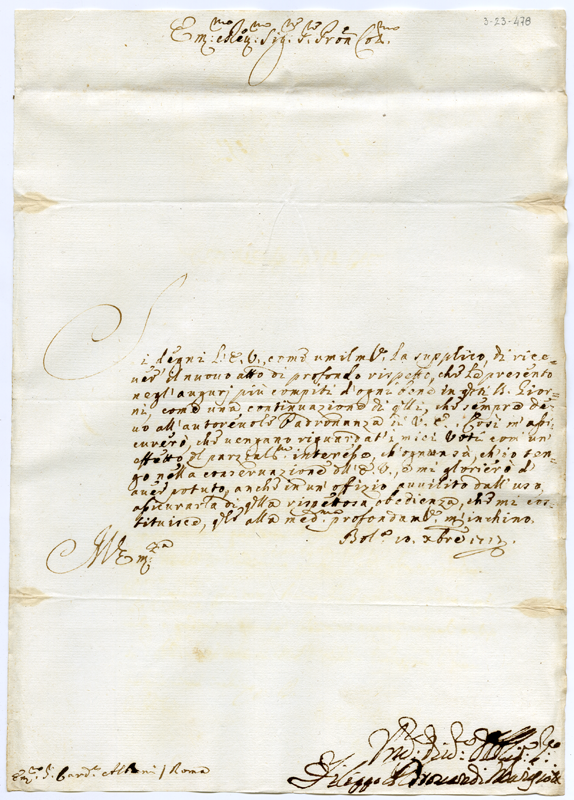 3-23-478
Em:mo e Rev:mo Sig.r S.r Pron Col.mo
Si degni L'E.V., com'umilm.te la supplico, di rice-
ver il nuovo atto di profondo rispetto, che le presento
negl'augurj più compiti d'ogni bene in q.sti S. Gior-
ni, come una continuazione di q.lli, che sempre de-
vo all'autorevole Padronanza di V. E. Così m'assi-
curerò, che vengano riguardati i miei Voti com'un
effetto del interesse, ch'io ten-
go nella conservazione dell'E.V., e mi glorierò d'
aver potuto, anche in un'offizio avvilito dall'uso,
assicurarla di q.lla rispettosa obbedienza, che mi cos-
tituisce, e alla med.ma profondam.te m'inchino.
Bol.a 10. Xbre 1717.
Di V. Em:za
Em:o S.r Card.e Albani / Roma
Filippo